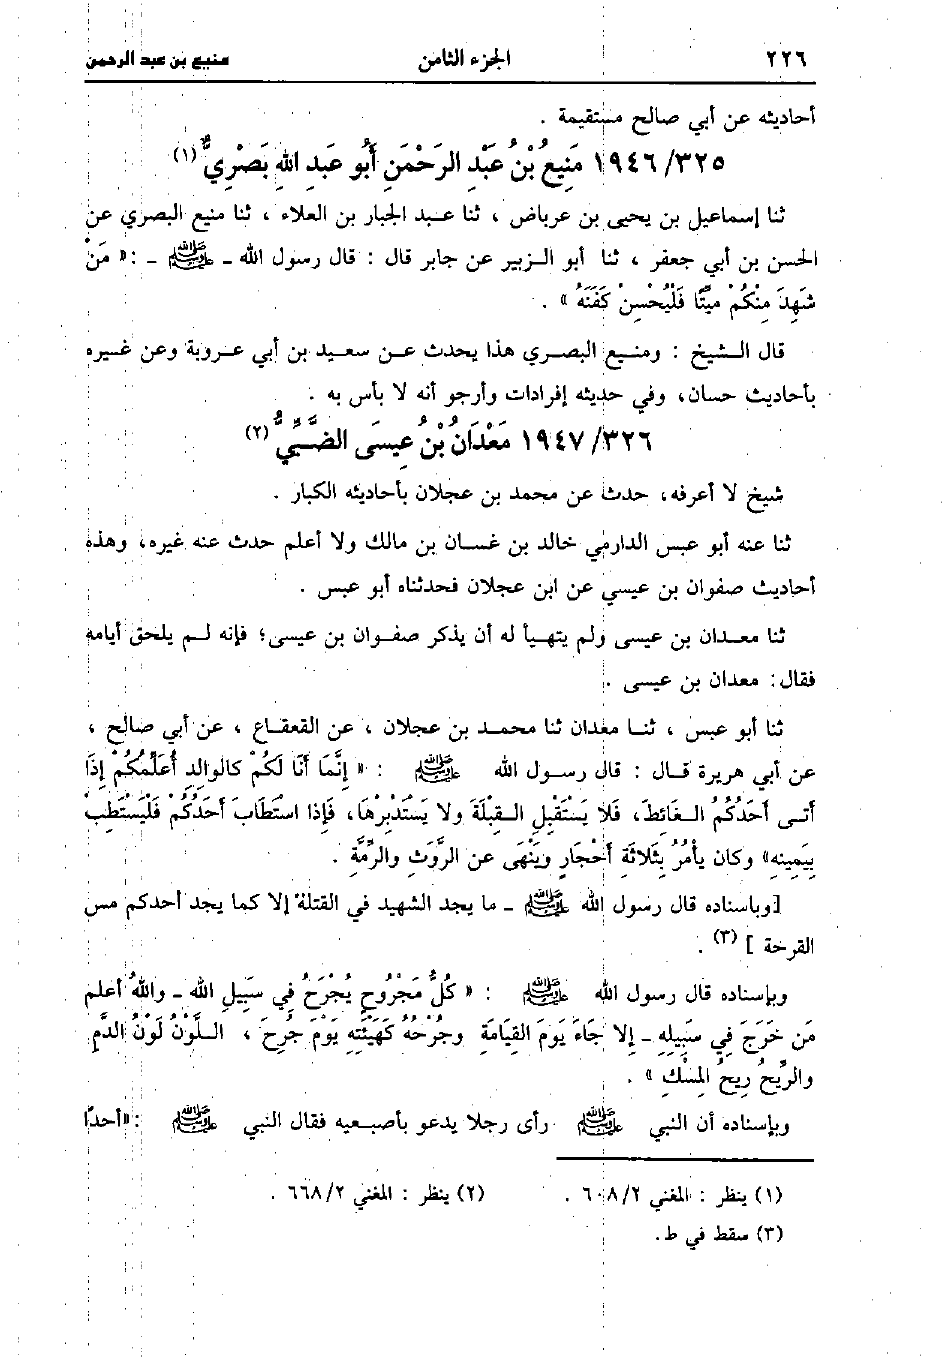 ٢٢٦ الجزء الثامن منيع بن عبد الرحمن
أحاديثه عن أبي صالح مستقيمة .
١٩٤٦/٣٢٥ مَنِيعُ بْنُ عَبْدِ الرَحْمَنِ أَبُو عَبدِ اللهِ بَصْرِيٌّ (١)
ثنا إسماعيل بن يحيى بن عرباض ، ثنا عبد الجبار بن العلاء ، ثنا منيع البصري عن
الحسن بن أبي جعفر ، ثنا أبو الزبير عن جابر قال : قال رسول الله ـ ﷺ ـ : « مَنْ
شَهِدَ مِنْكُمْ مَيِّتًا فَلْيُحْسِنْ كَفَنَهُ » .
قال الشيخ : ومنيع البصري هذا يحدث عن سعيد بن أبي عروبة وعن غيره
بأحاديث حسان، وفي حديثه إفرادات وأرجو أنه لا بأس به .
١٩٤٧/٣٢٦ مَعْدَانُ بْنُ عِيسَى الضَّبِّيُّ (٢)
شيخ لا أعرفه، حدث عن محمد بن عجلان بأحاديثه الكبار .
ثنا عنه أبو عبس الدارمي خالد بن غسان بن مالك ولا أعلم حدث عنه غيره، وهذه
أحاديث صفوان بن عيسي عن ابن عجلان فحدثناه أبو عبس .
ثنا معدان بن عيسى ولم يتهيأ له أن يذكر صفوان بن عيسى؛ فإنه لم يلحق أيامه
فقال: معدان بن عيسى .
ثنا أبو عبس ، ثنا معدان ثنا محمد بن عجلان ، عن القعقاع ، عن أبي صالح ،
عن أبي هريرة قال : قال رسول الله ﷺ : « إِنَّمَا أَنَا لَكُمْ كالوالدِ أُعَلِّمُكُمْ إِذَا
أَتَى أَحَدُكُمُ الغَائطَ، فَلا يَسْتَقْبِلِ القِبْلَةَ ولا يَسْتَدْبِرْهَا، فَإِذا اسْتَطَابَ أَحَدُكُمْ فَلْيَسْتَطِبْ
بِيَمِينِه» وكان يأمُرُ بِثَلاثَةِ أَحْجَارٍ ويَنْهَى عن الرَّوَثِ والرِّمَّة .
[وبإسناده قال رسول الله ﷺ ـ ما يجد الشهيد في القتلة إلا كما يجد أحدكم مس
القرحة ] (٣) .
وبإسناده قال رسول الله ﷺ : « كُلُّ مَجْرُوحٍ يُجْرَحُ فِي سَبِيلِ اللهِ ـ واللهُ أعلم
مَن خَرَجَ فِي سَبِيلِهِ ـ إِلا جَاءَ يَومَ القِيَامَةِ وجُرْحُهُ كَهَيْئَتِهِ يَوْمَ جُرِحَ ، اللَّوْنُ لَوْنُ الدَّمِ
والرِّيْحُ رِيحُ المِسْكِ » .
وبإسناده أن النبي ﷺ رأى رجلا يدعو بأصبعيه فقال النبي ﷺ : «أحدًا
(١) ينظر : المغني ٦٠٨/٢ . (٢) ينظر : المغني ٦٦٨/٢ .
(٣) سقط في ط.